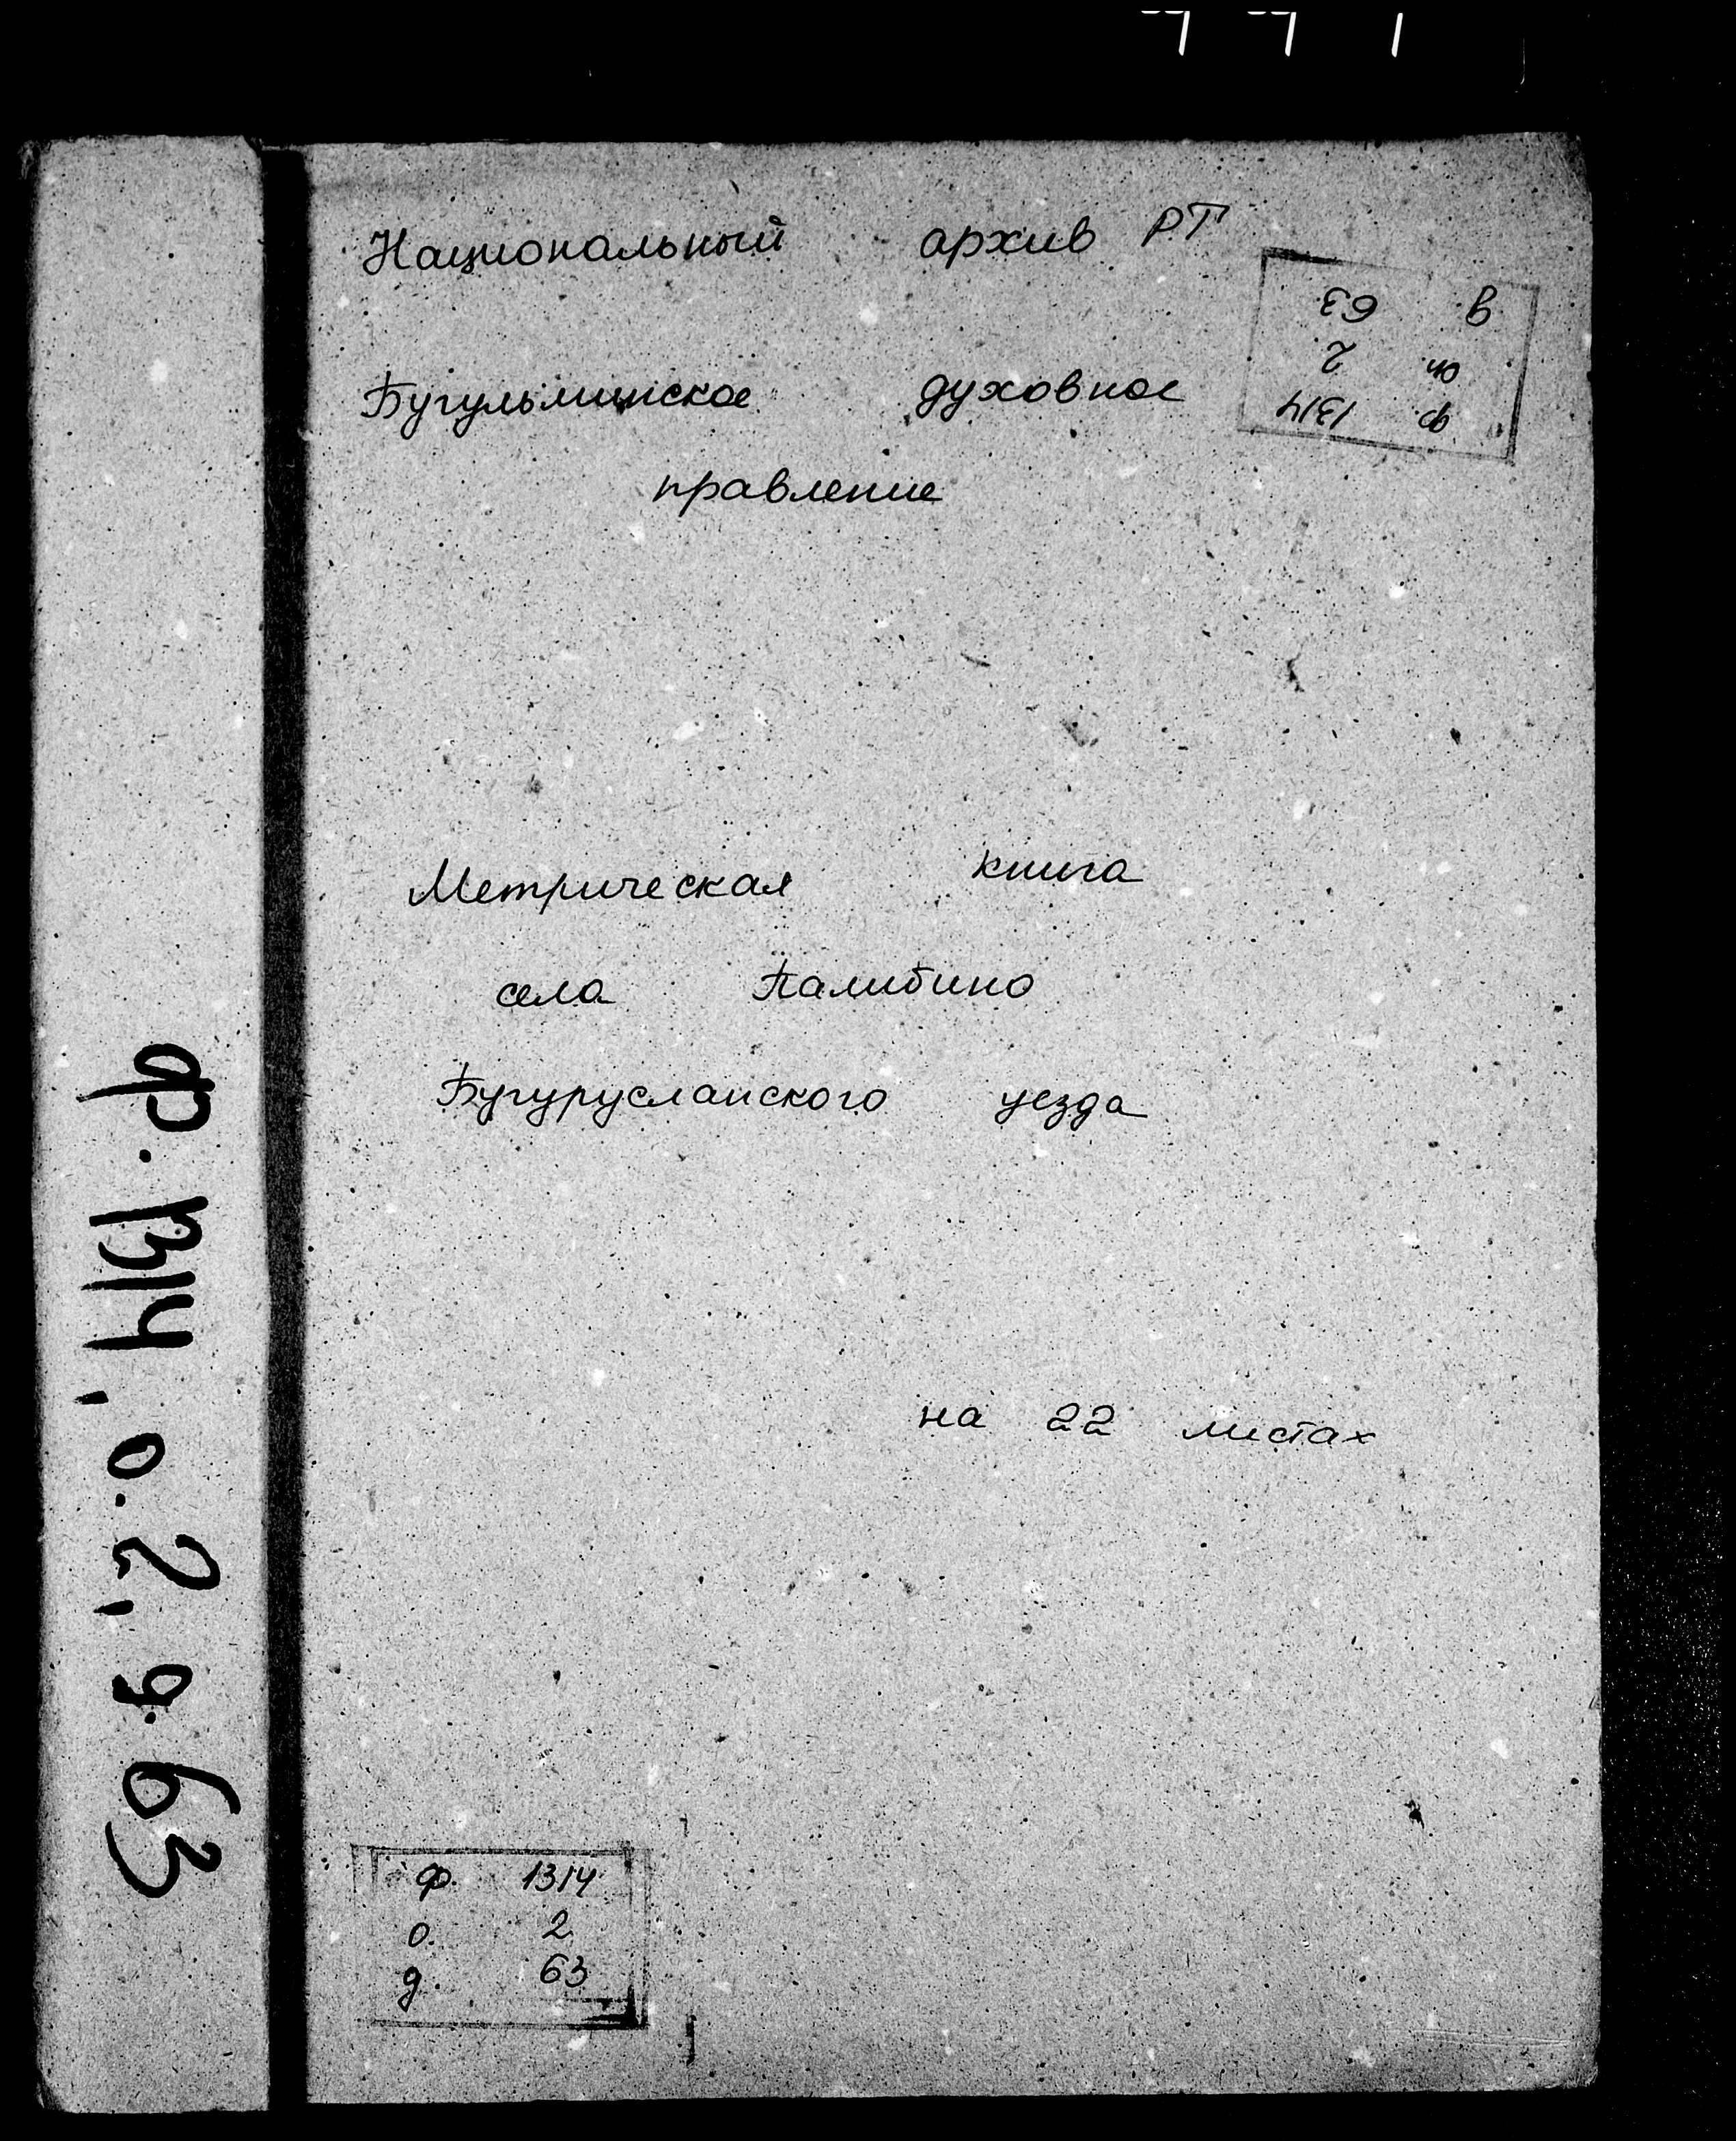 Национальный архив РТ
д. 63
оп. 2
ф. 1314
Бугульминское духовное
правление
Метрическая книга
села Палибино
Бугурусланского уезда
на 22 листах
ф. 1314, о. 2, д. 63
ф. 1314
о. 2
д. 63